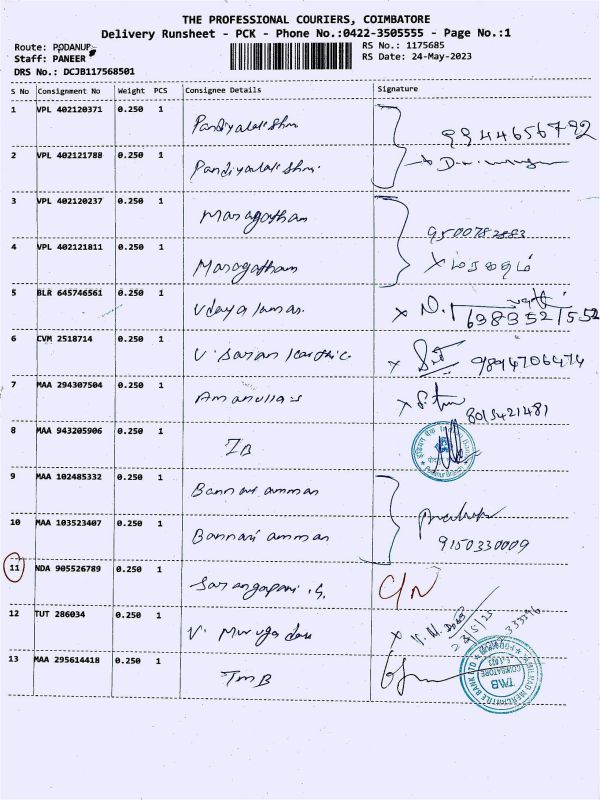 THE PROFESSIONAL COURIERS, COIMBATORE
Delivery Runsheet - PCK - Phone No.:0422-3505555 - Page No.:1
Route: PODANUP
Staff: PANEER
DRS No.: DCJB117568501
RS No.: 1175685
RS Date: 24-May-2023
S No Consignment No Weight PCS Consignee Details Signature
1 VPL 402120371 0.250 1 Pandiyalakshmi 9944656792
2 VPL 402121788 0.250 1 Pandiyalakshmi
3 VPL 402120237 0.250 1 Maragatham 9500782883
4 VPL 402121811 0.250 1 Maragatham x மரகதம்
5 BLR 645746561 0.250 1 Udaya x N.
6 CVM 2518714 0.250 1 V. Saran Karthic x 9894706474
7 MAA 294307504 0.250 1 Amanulla x 8015421481
8 MAA 943205906 0.250 1 IB
9 MAA 102485332 0.250 1 Bannari amman
10 MAA 103523407 0.250 1 Bannari amman 9150330009
11 NDA 905526789 0.250 1 Sarangapani .G. C/N
12 TUT 286034 0.250 1 V. Muruga x
13 MAA 295614418 0.250 1 TMB
TAMILNAD MERCANTILE BANK LTD
TMB
COIMBATORE